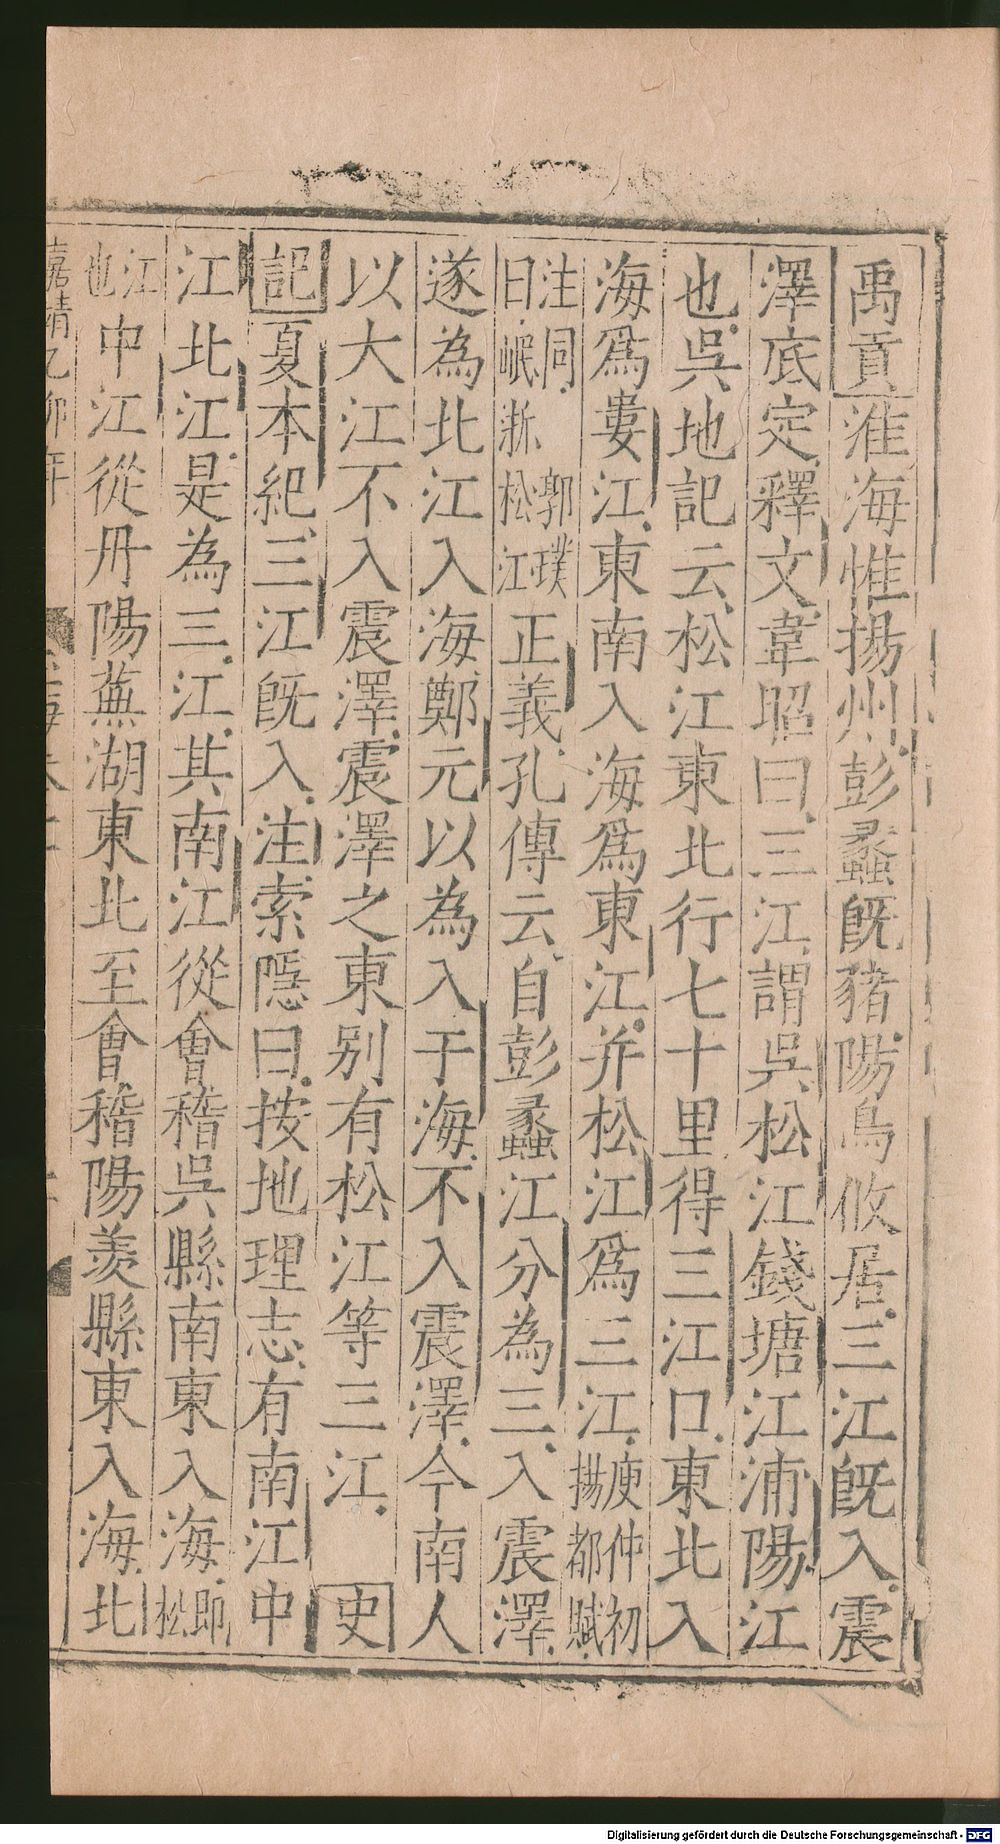 禹貢淮海惟揚州彭蠡既豬陽鳥攸居三江既入震
澤底定釋文韋昭曰三江謂吳松江錢塘江浦陽江
也吳地記云松江東北行七十里得三江口東北入
海爲婁江東南入海爲東江并松江爲三江庾仲初揚都賦
注同郭璞曰岷浙松江正義孔傳云自彭蠡江分為三入震澤
遂為北江入海鄭元以為入于海不入震澤今南人
以大江不入震澤震澤之東別有松江等三江史
記夏本紀三江既入注索隱曰按地理志有南江中
江北江是為三江其南江從會稽吳縣南東入海即松
江也中江從丹陽蕪湖東北至會稽陽羨縣東入海北
嘉靖乙卯年
Digitalisierung gefördert durch die Deutsche Forschungsgemeinschaft - DFG